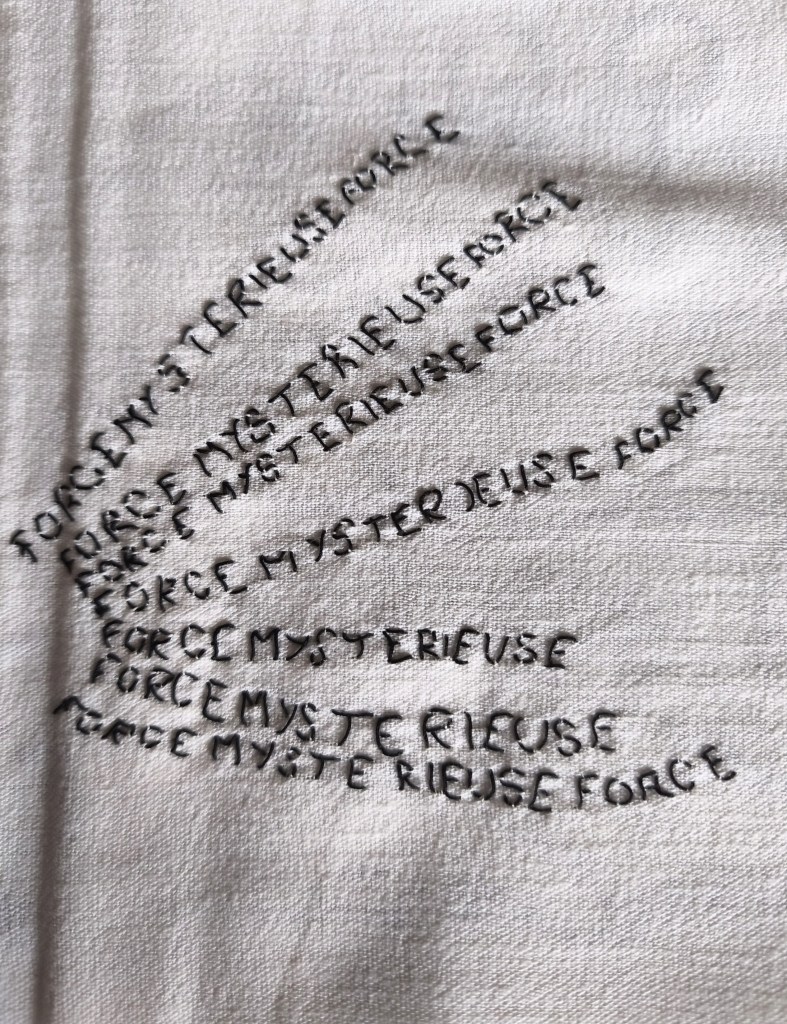 FORCE MYSTERIEUSE FORCE
FORCE MYSTERIEUSE FORCE
FORCE MYSTERIEUSE FORCE
FORCE MYSTERIEUSE FORCE
FORCE MYSTERIEUSE
FORCE MYSTERIEUSE
FORCE MYSTERIEUSE FORCE